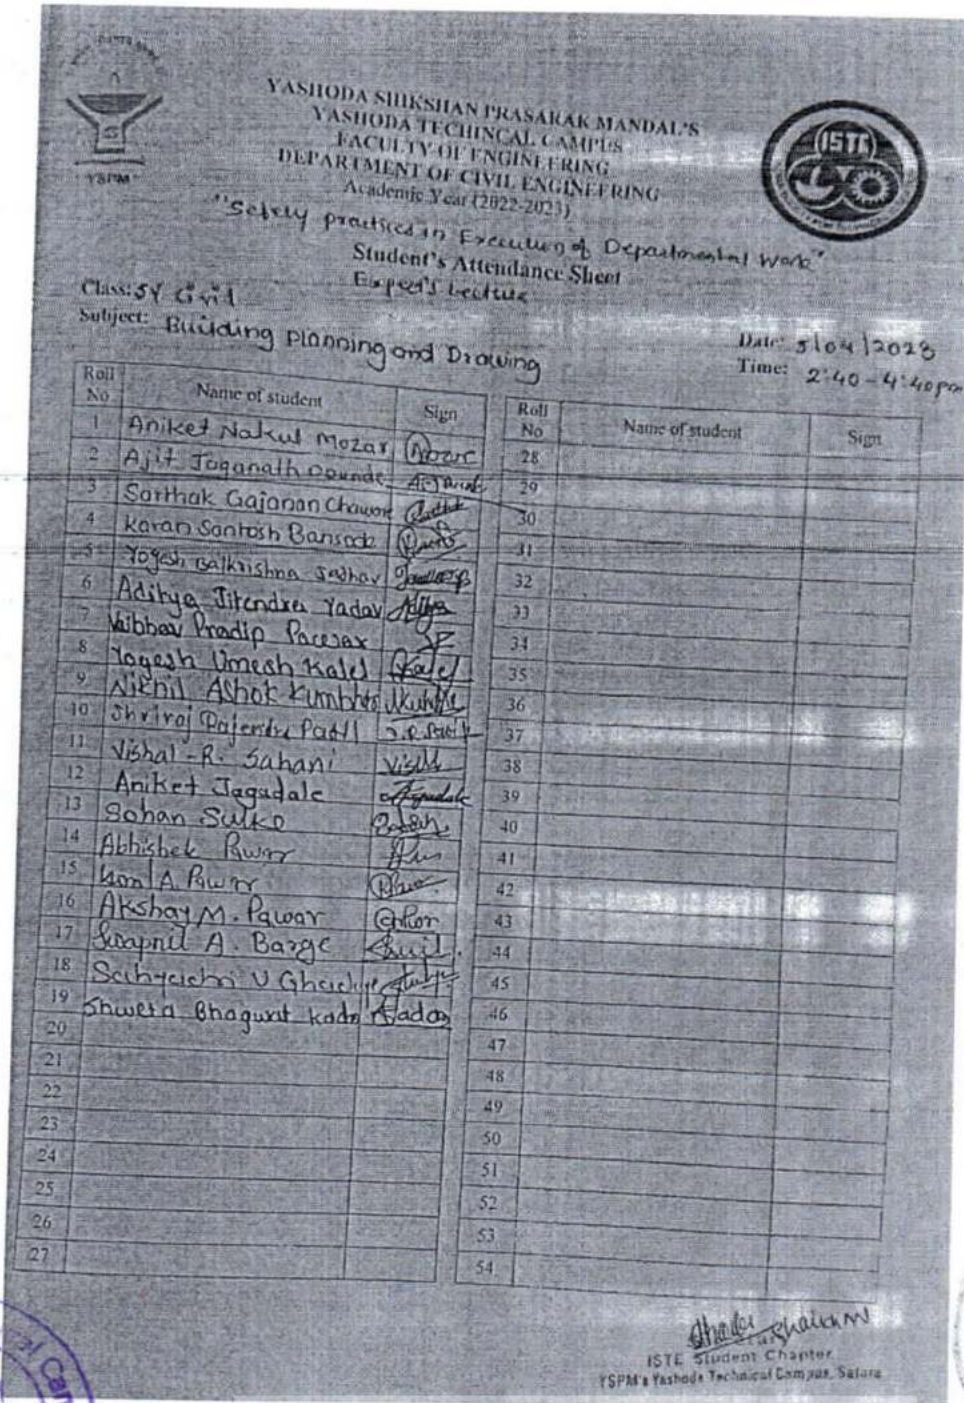 YSPM
ISTE
YASHODA SHIKSHAN PRASARAK MANDAL'S
YASHODA TECHINCAL CAMPUS
FACULTY OF ENGINEERING
DEPARTMENT OF CIVIL ENGINEERING
Academic Year (2022-2023)
"Safety practices in Execution of Departmental Work"
Student's Attendance Sheet
Expert's Lecture
Class: SY Civil
Subject: Building planning and Drawing
Date: 5/04/2023
Time: 2:40 - 4:40 pm
Roll No Name of student Sign
1 Aniket Nakul Mozar
2 Ajit Jaganath Dounde
3 Sarthak Gajanan Chavan
4 Karan Santosh Bansode
5 Yogesh Balkrishna Jadhav
6 Aditya Jitendra Yadav Aditya
7 Vaibhav Pradip
8 Yogesh Umesh Kalel Kalel
9 Nikhil Ashok Kumbhar
10 Shriraj Rajendra Patil S.R.Patil
11 Vishal - R. Sahani
12 Aniket Jagadale Jagadale
13 Sohan Sulke
14 Abhishek Pawar
15 A Pawar
16 Akshay M. Pawar
17 Swapnil A. Barge
18 V
19 Shweta Bhagwat Kadam
20
21
22
23
24
25
26
27
Roll No Name of student Sign
28
29
30
31
32
33
34
35
36
37
38
39
40
41
42
43
44
45
46
47
48
49
50
51
52
53
54
ISTE Student Chapter
YSPM's Yashoda Technical Campus, Satara